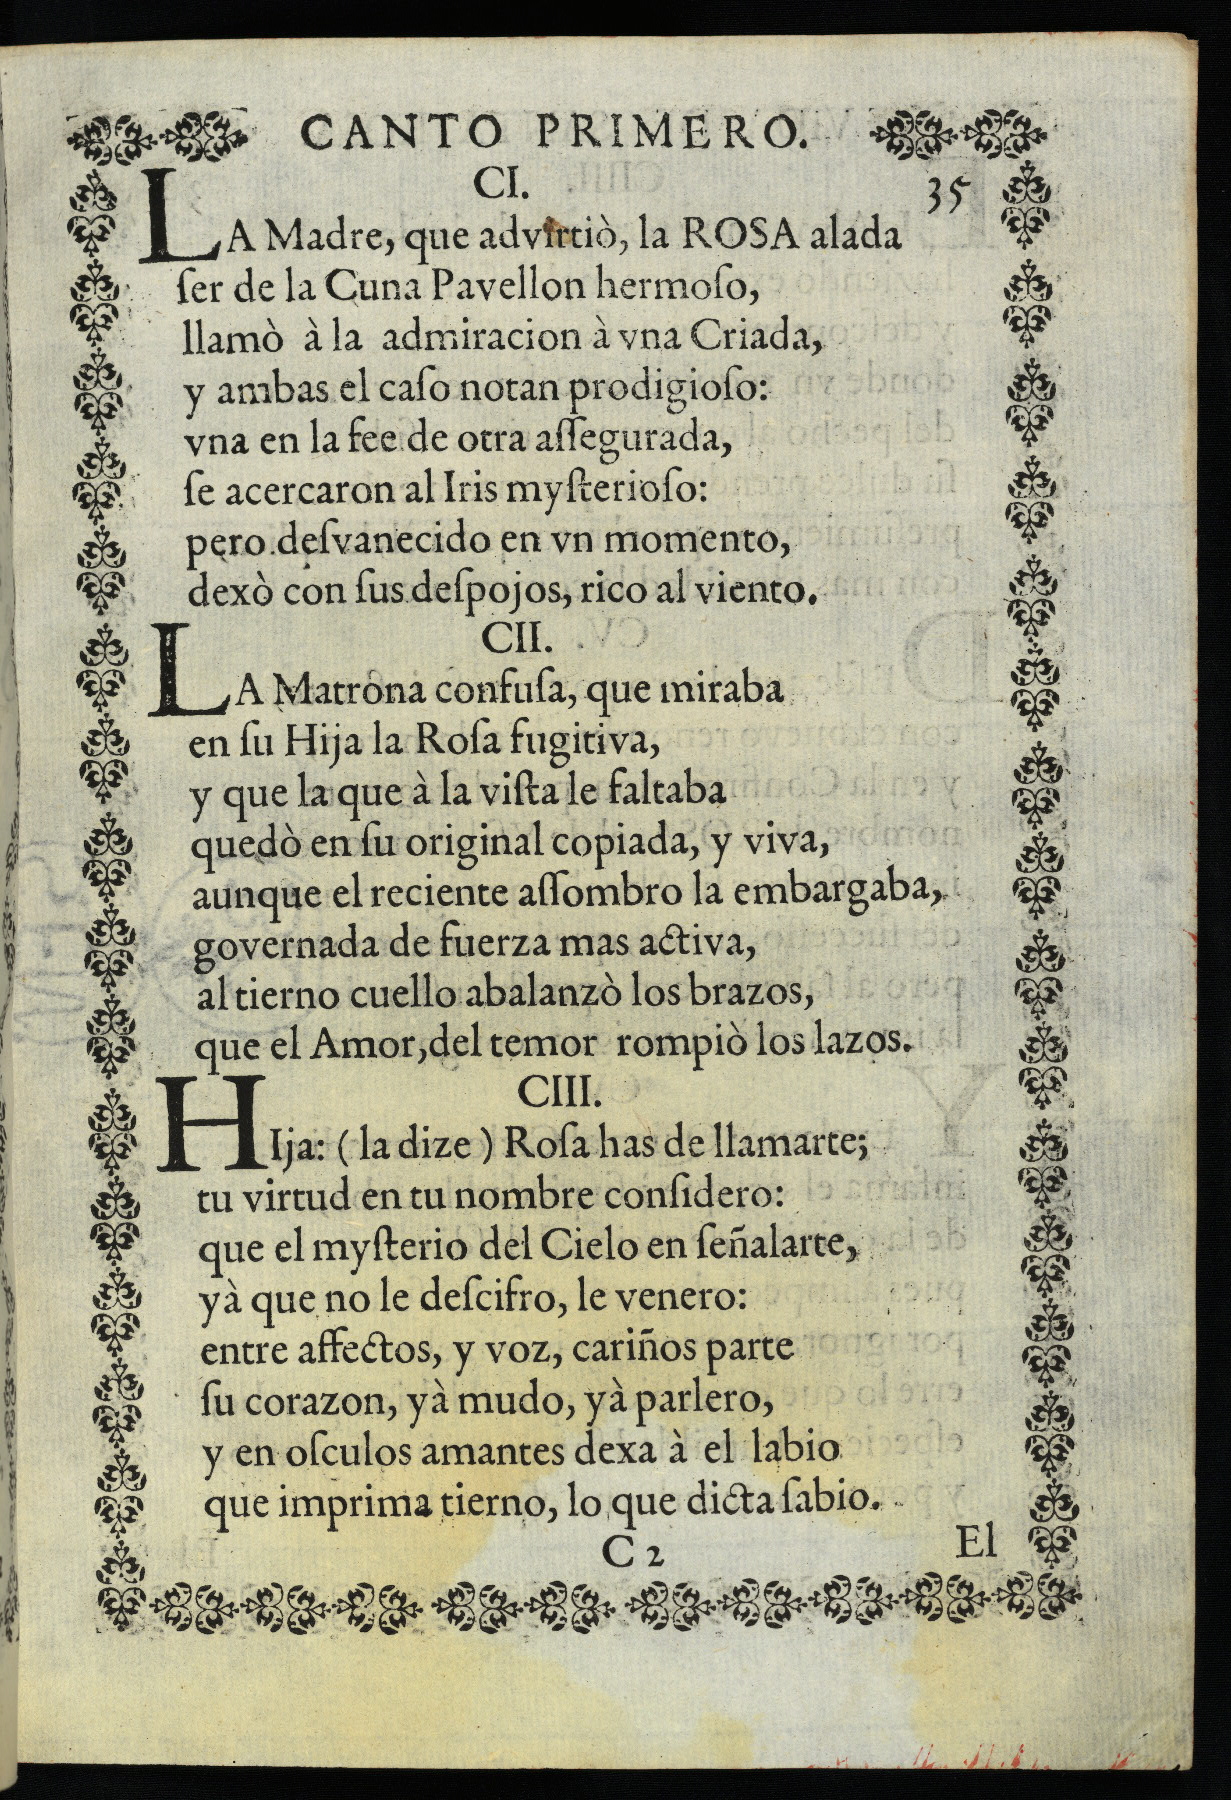 CANTO PRIMERO.
35
CI.
LA Madre, que advirtiò, la ROSA alada
ſer de la Cuna Pavellon hermoſo,
llamò à la admiracion à vna Criada,
y ambas el caſo notan prodigioſo:
vna en la fee de otra aſſegurada,
ſe acercaron al Iris myſterioſo:
pero deſvanecido en vn momento,
dexò con ſus deſpojos, rico al viento.
CII.
LA Matrona confuſa, que miraba
en ſu Hija la Roſa fugitiva,
y que la que à la viſta le faltaba
quedò en ſu original copiada, y viva,
aunque el reciente aſſombro la embargaba,
governada de fuerza mas activa,
al tierno cuello abalanzò los brazos,
que el Amor, del temor rompiò los lazos.
CIII.
HIja: ( la dize ) Roſa has de llamarte;
tu virtud en tu nombre conſidero:
que el myſterio del Cielo en ſeñalarte,
yà que no le deſcifro, le venero:
entre affectos, y voz, cariños parte
ſu corazon, yà mudo, yà parlero,
y en oſculos amantes dexa à el labio
que imprima tierno, lo que dicta ſabio.
C 2
El